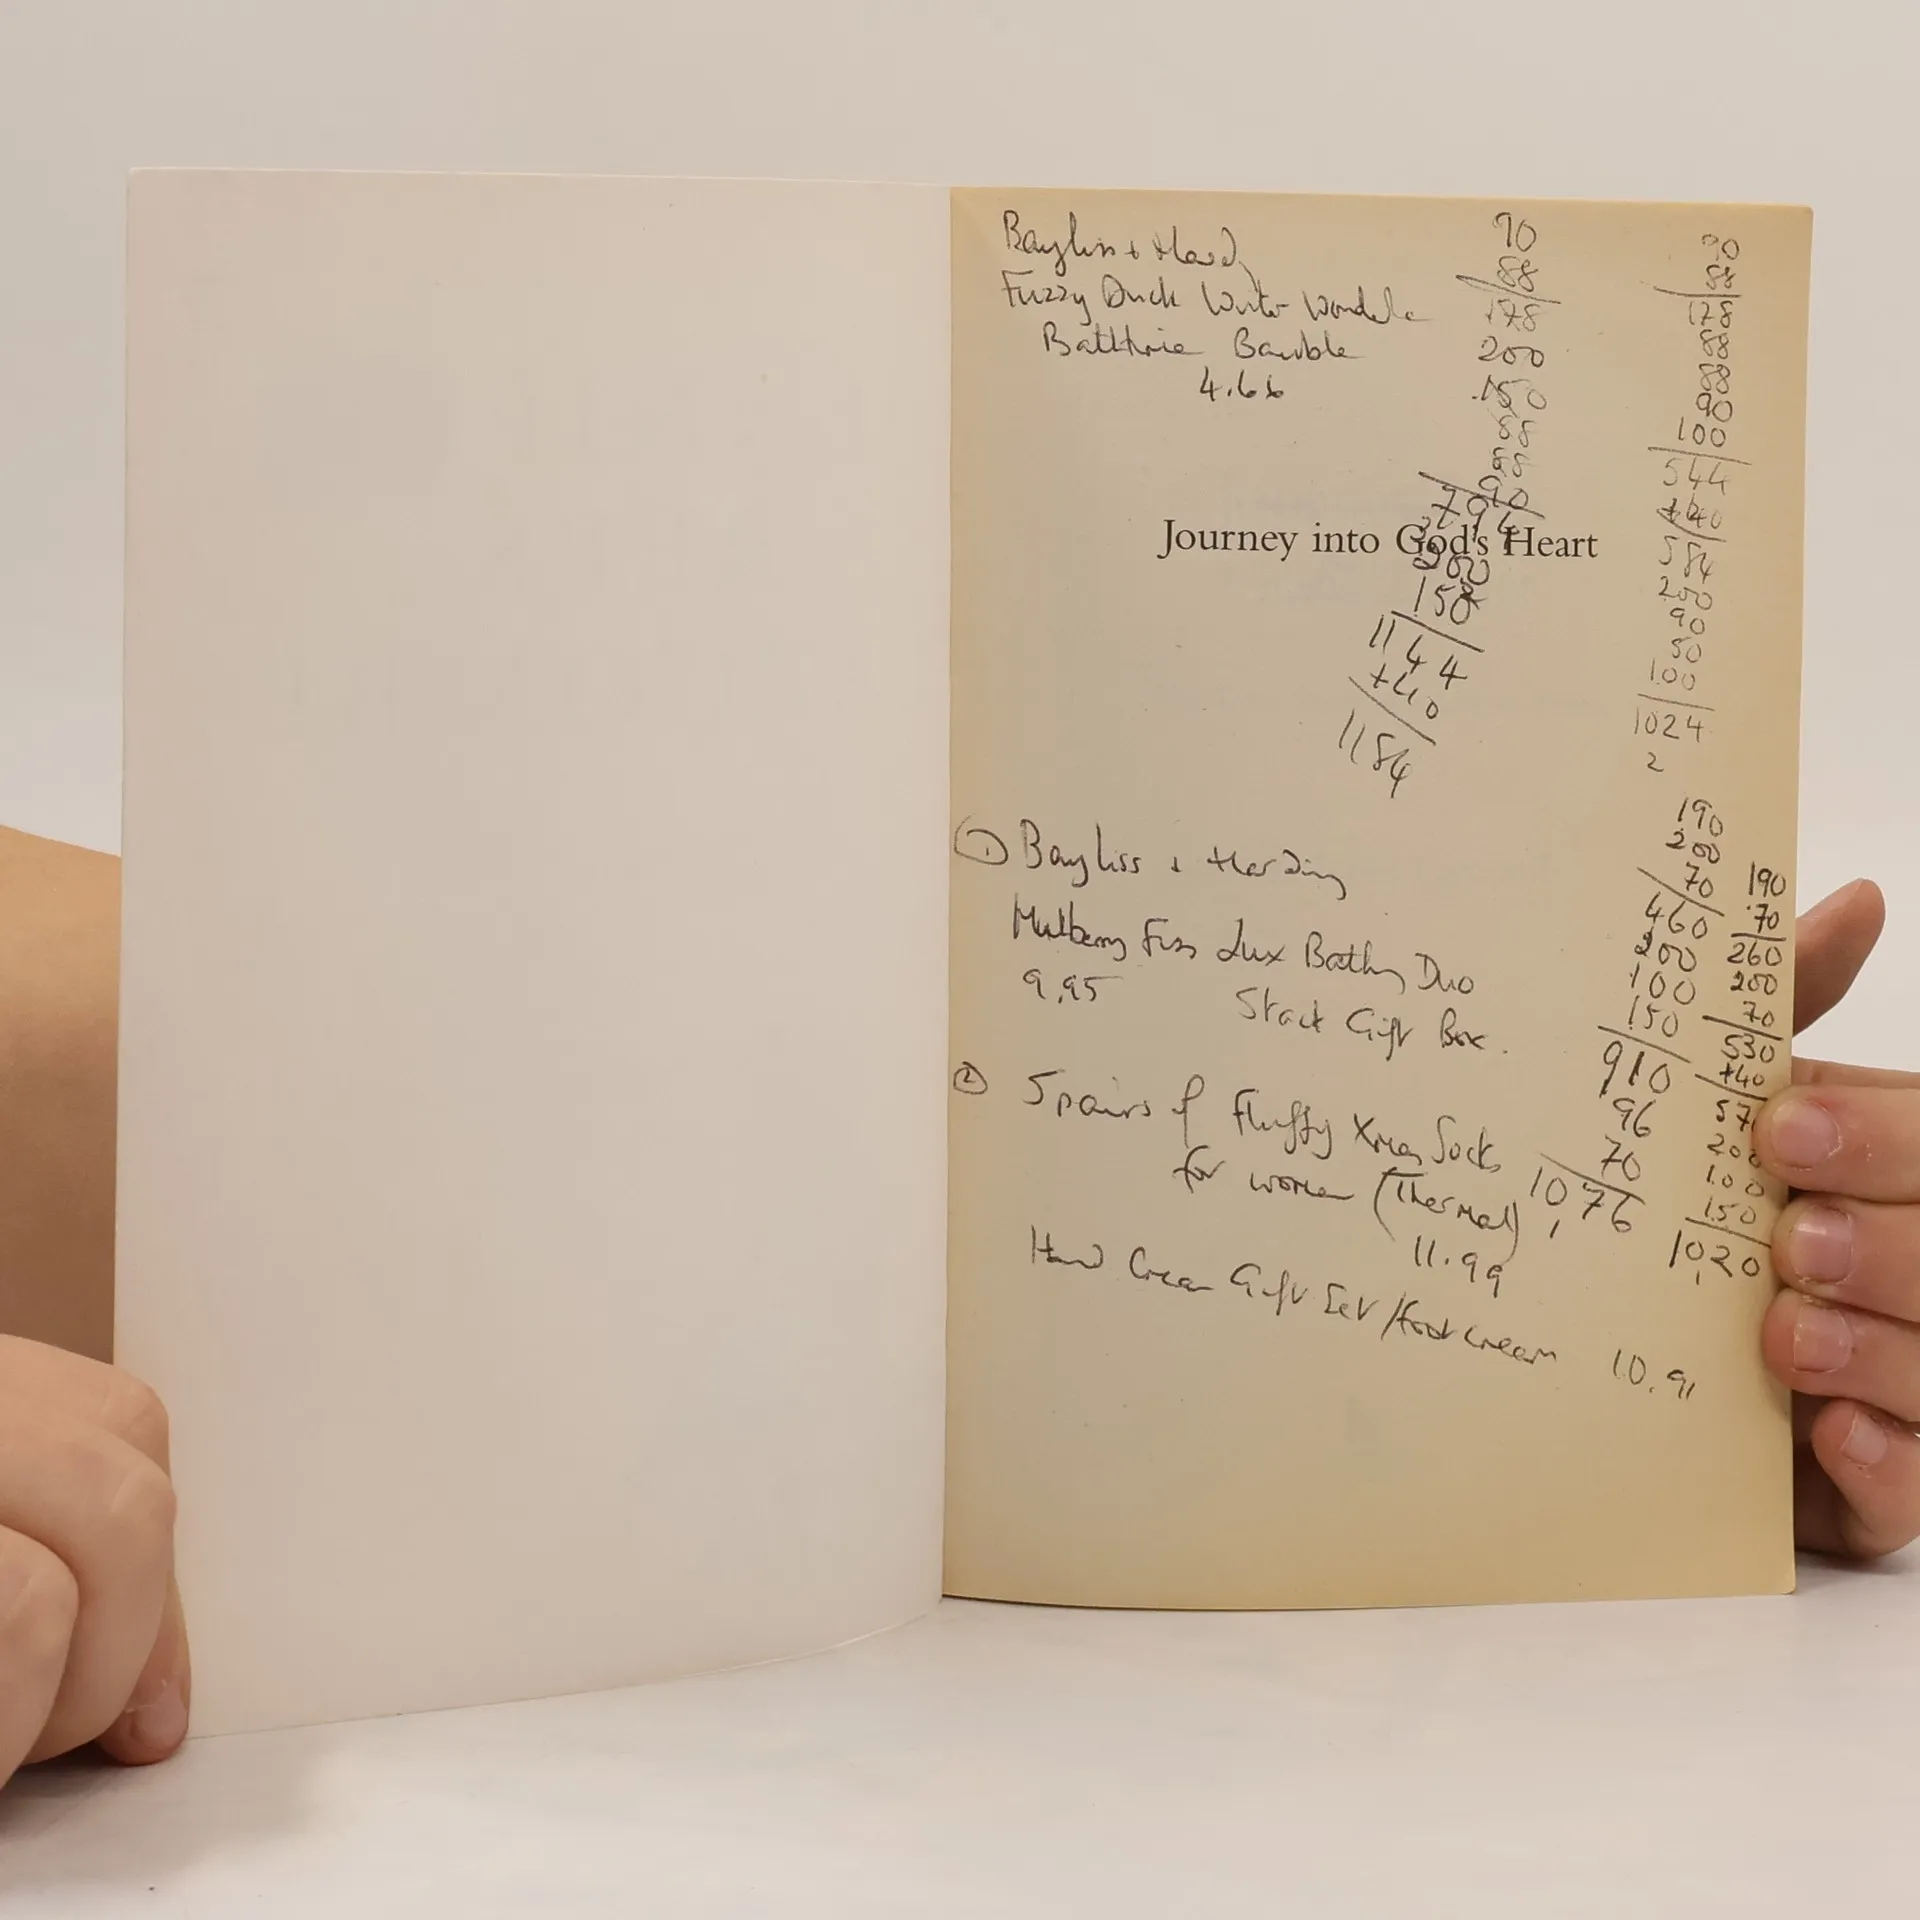 Bayliss + Hard
Fuzzy Duck Winter Wonderla
Bauble
4.66
90
88
178
200
150
88
88
90
794
200
150
1144
+40
1184
90
88
178
88
88
90
100
544
+40
584
200
90
50
100
1024
2
Journey into God's Heart
① Bayliss + Harding
Mulberry Fizz Lux Bathing Duo
9.95 Stack Gift Box.
② 5 pairs of Fluffy Xmas Socks
for women (Thermal)
11.99
Hand Cream Gift Set / foot cream 10.91
190
200
70
460
200
100
150
910
96
70
1076
1
190
70
260
200
70
530
+40
57
200
100
150
1020
1